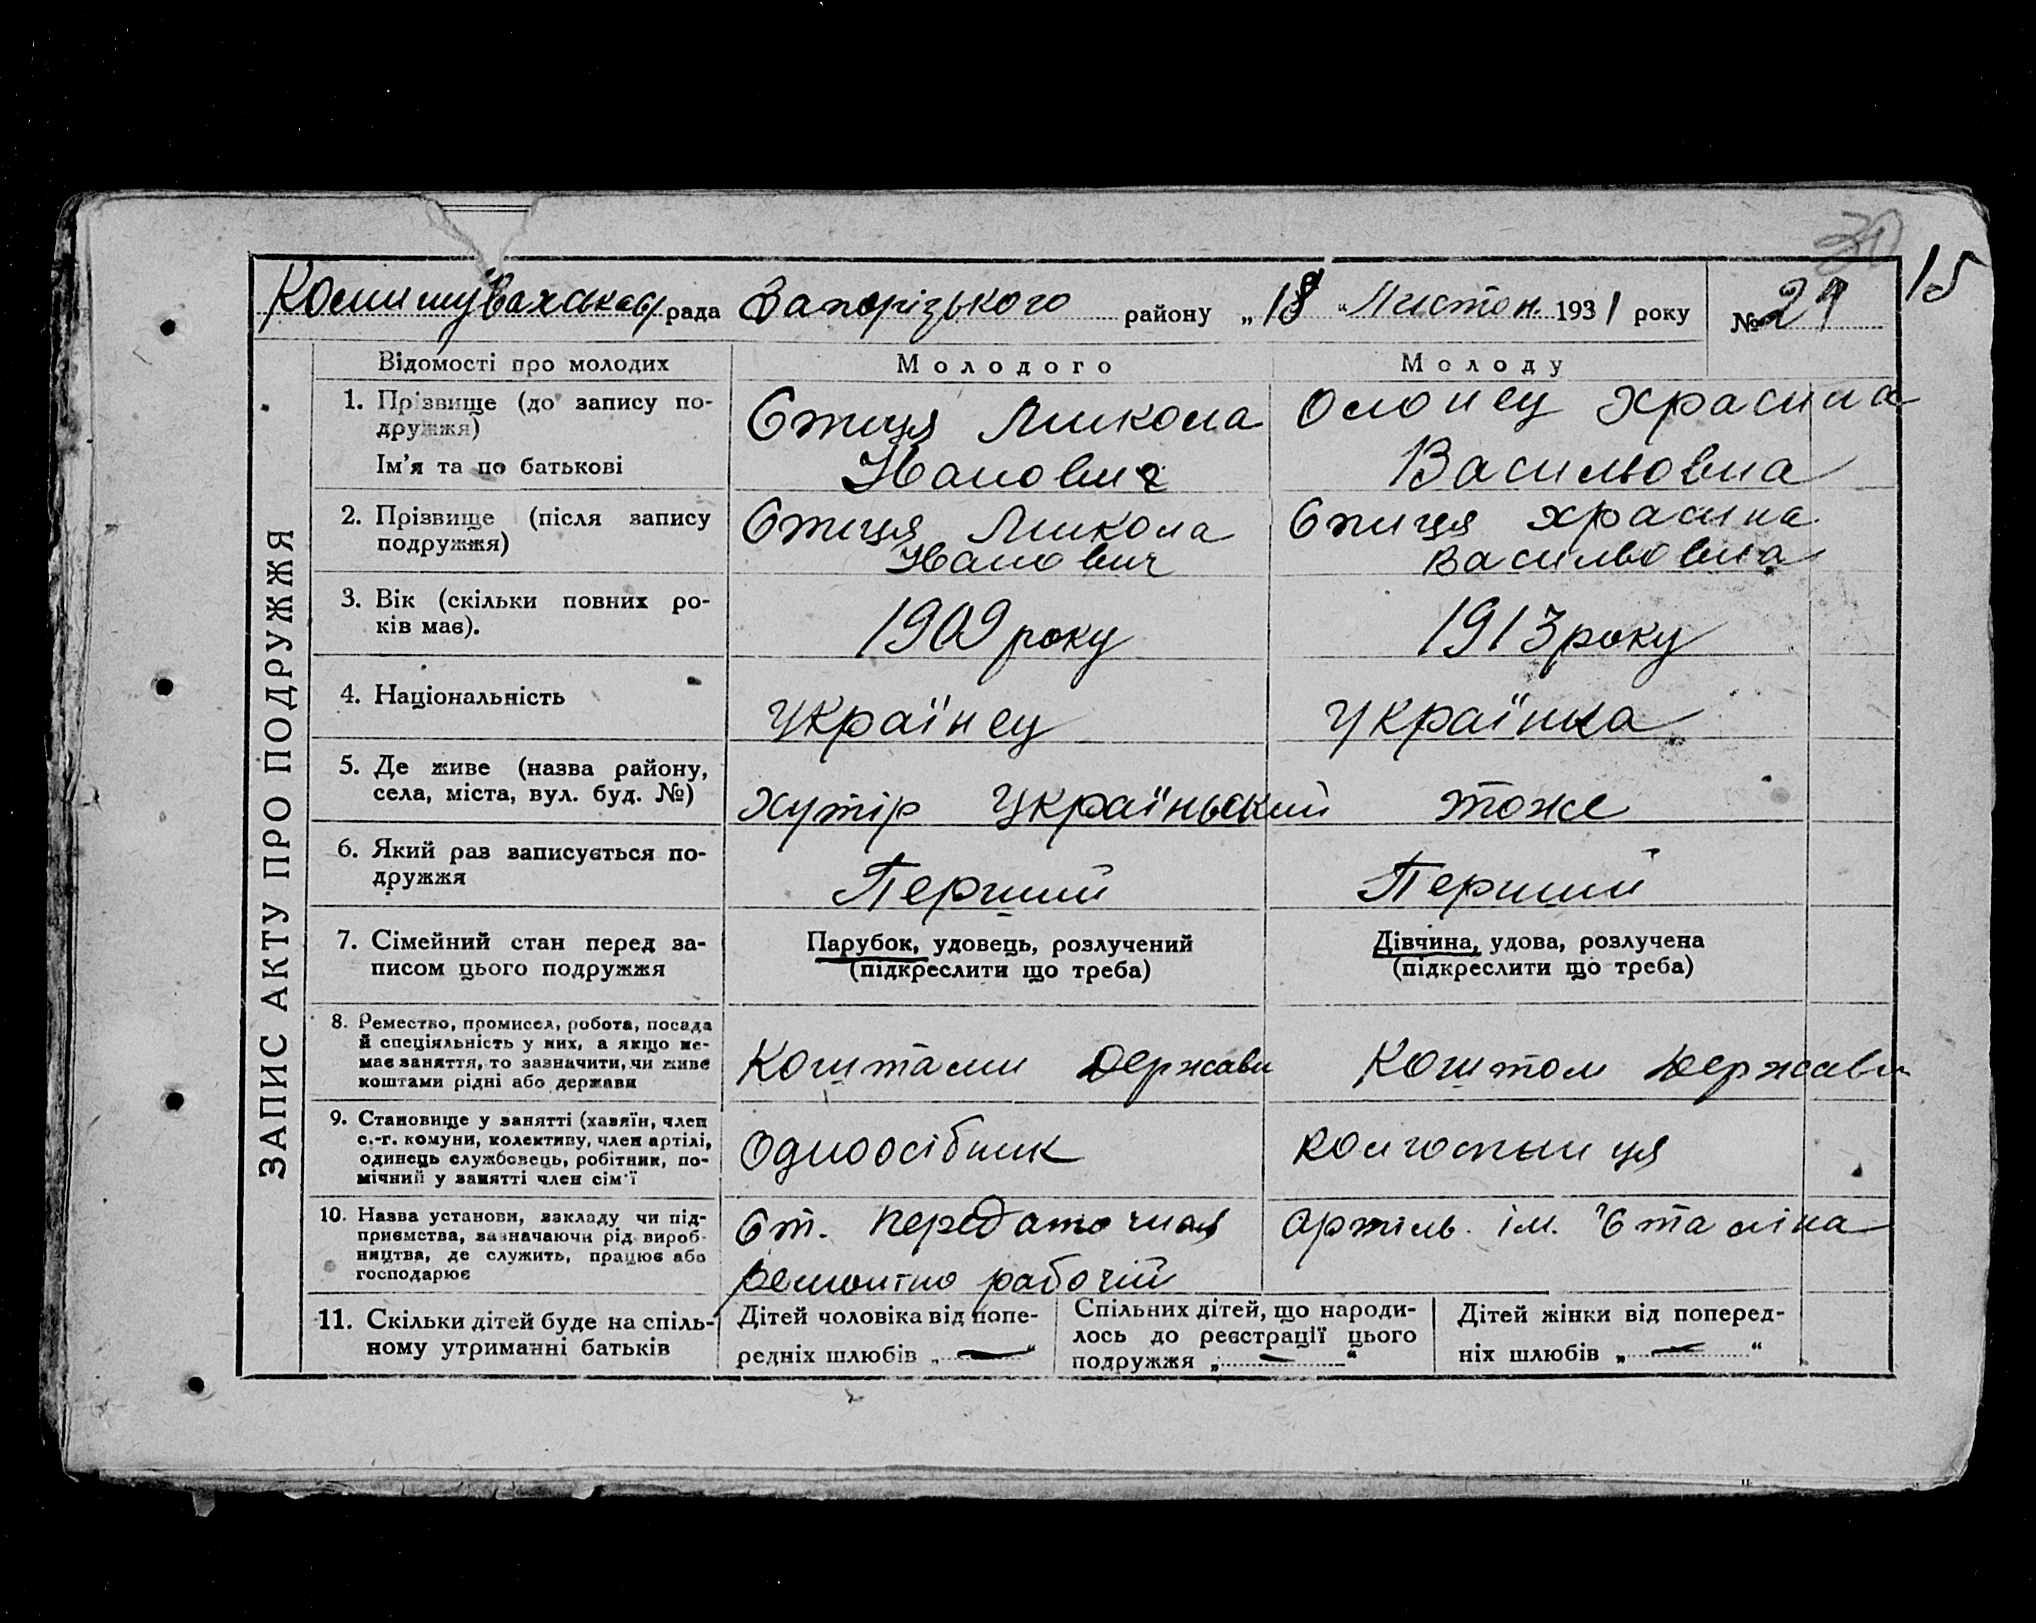 15
Комишувахська рада Запорізького району „18“ Листоп. 1931 року № 21
ЗАПИС АКТУ ПРО ПОДРУЖЖЯ
Відомості про молодих Молодого Молоду
1. Прізвище (до запису по-
дружжя)
Ім'я та по батькові
Спиця Микола
Іванович
Храсина
Васильовна
2. Прізвище (після запису
подружжя)
Спиця Микола
Іванович
Спиця Храсина
Васильовна
3. Вік (скільки повних ро-
ків має).
1909 року
1913 року
4. Національність
Українец
Українка
5. Де живе (назва району,
села, міста, вул. буд. №)
хутір Україньский
тоже
6. Який раз записується по-
дружжя
Перший
Перший
7. Сімейний стан перед за-
писом цього подружжя
Парубок, удовець, розлучений
(підкреслити що треба)
Дівчина, удова, розлучена
(підкреслити що треба)
8. Ремество, промисел, робота, посада
й спеціяльність у них, а якщо не-
має заняття, то зазначити, чи живе
коштами рідні або держави
Коштами держави
Коштом держави
9. Становище у занятті (хазяїн, член
с.-г. комуни, колективу, член артілі,
одинець службовець, робітник, по-
мічний у занятті член сім'ї
Одноосібник
колгоспниця
10. Назва установи, закладу чи під-
приємства, зазначаючи рід вироб-
ництва, де служить, працює або
господарює
Ст. Передаточная
ремонтно рабочій
Артіль ім. Сталіна
11. Скільки дітей буде на спіль-
ному утриманні батьків
Дітей чоловіка від попе-
редніх шлюбів „—“
Спільних дітей, що народи-
лось до реєстрації цього
подружжя „—“
Дітей жінки від поперед-
ніх шлюбів „—“